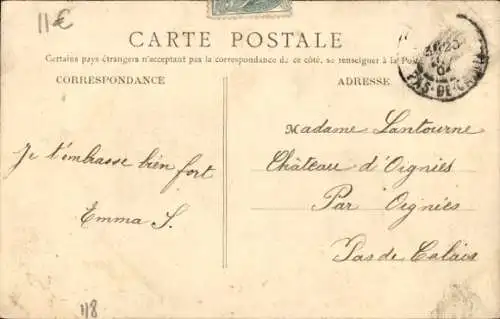 11€
CARTE POSTALE
Certains pays étrangers n'acceptant pas la correspondance de ce côté, se renseigner à la Poste
CORRESPONDANCE
ADRESSE
PAS-DE-CALAIS
Je t'embrasse bien fort
Emma S.
Madame Lantourne
Château d'Oignies
Par Oignies
Pas de Calais
118